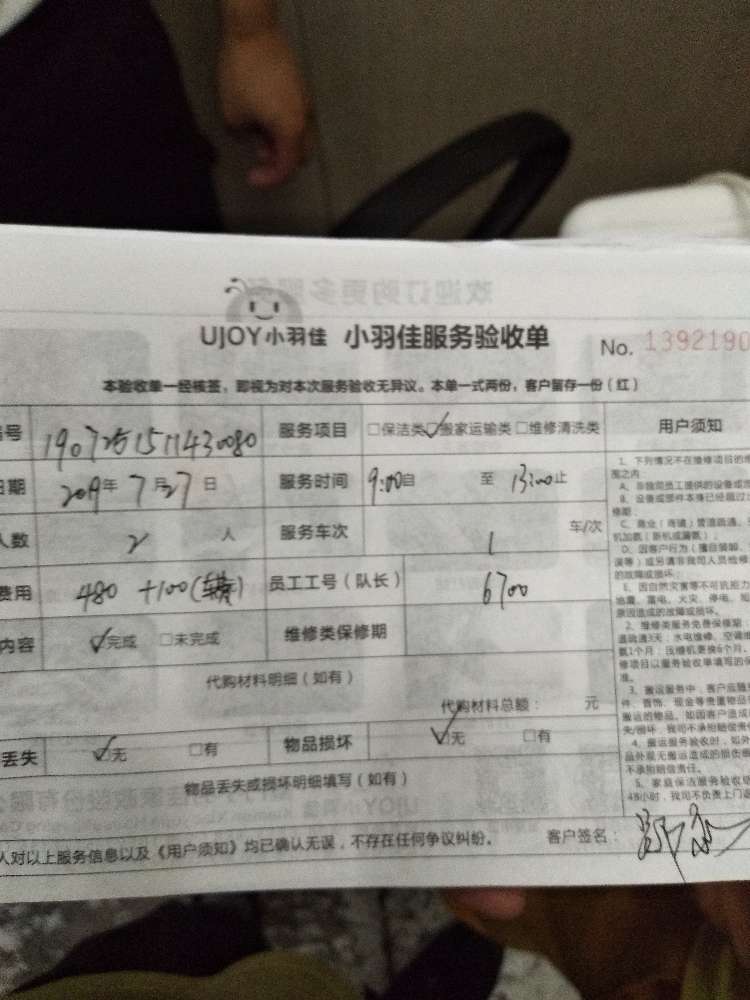 UJOY小羽佳 小羽佳服务验收单 No. 1392190
本验收单一经核签，即视为对本次服务验收无异议。本单一式两份，客户留存一份（红）
号 服务项目 □保洁类 ☑搬家运输类 □维修清洗类 用户须知
日期 2019年 7月27日 服务时间 9:00自 至 13:00止
人数 2 人 服务车次 1 车/次
费用 480 +100 员工工号（队长） 6700
内容 ☑完成 □未完成 维修类保修期
代购材料明细（如有）
代购材料总额： 元
丢失 ☑无 □有 物品损坏 ☑无 □有
物品丢失或损坏明细填写（如有）
人对以上服务信息以及《用户须知》均已确认无误，不存在任何争议纠纷。 客户签名：
1、下列情况不在维修项目的
围之内
A、非我司员工提供的设备或
B、设备或部件本身已经超过
修期
C、商业（商铺）管道疏通、
机加氨（新机或漏氨）；
D、因客户行为（擅自装卸、
误等）或另请非我司人员检修
的故障或损坏；
E、因自然灾害等不可抗能力
地震、雷电、火灾、停电、
原因造成的故障或损坏。
2、维修类服务免费保修期
道疏通3天；水电维修、空调
氨1个月；压缩机更换6个月、
修项目以服务验收单填写的保
准。
3、搬运服务中，客户应随
件、首饰、现金等贵重物品
搬运的物品。如因客户造成
失/损坏，我司不承担赔偿责
4、搬运服务验收时，如外
品外观无搬运造成的损伤
不承担赔偿责任。
5、家庭保洁服务验收
48小时，我司不负责上门